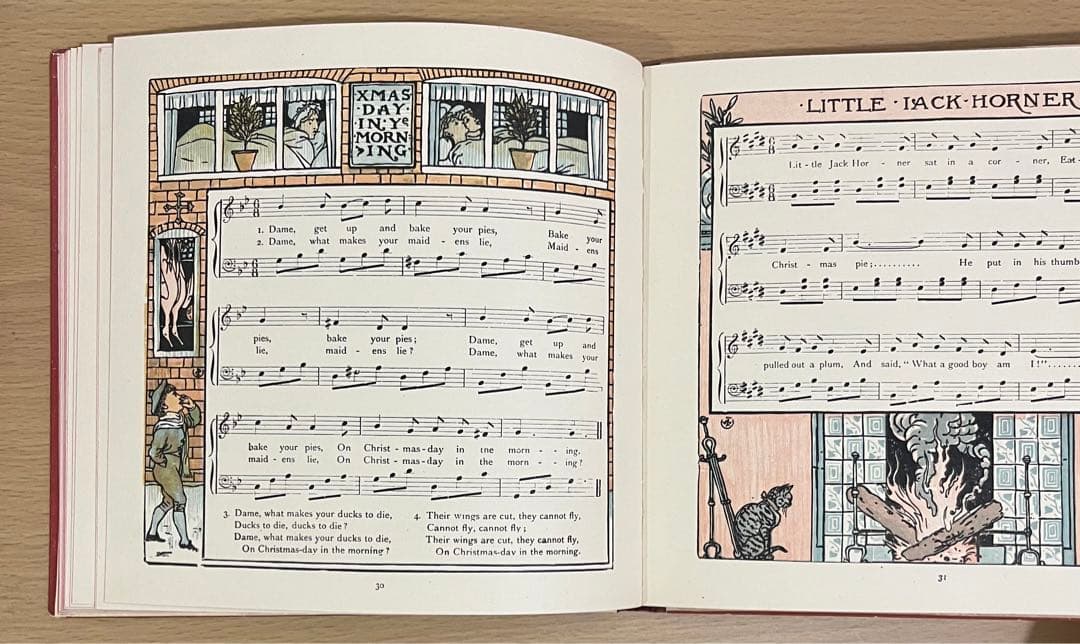 XMAS
·DAY·
IN·Yᵉ
MORN
ING
1. Dame, get up and bake your pies, Bake your
2. Dame, what makes your maid - ens lie, Maid - ens
pies, bake your pies; Dame, get up and
lie, maid - ens lie? Dame, what makes your
bake your pies, On Christ - mas-day in the morn - - ing.
maid - ens lie, On Christ - mas-day in the morn - - ing?
3. Dame, what makes your ducks to die,
Ducks to die, ducks to die?
Dame, what makes your ducks to die,
On Christmas-day in the morning?
4. Their wings are cut, they cannot fly,
Cannot fly, cannot fly;
Their wings are cut, they cannot fly,
On Christmas-day in the morning.
30
·LITTLE·JACK·HORNER
Lit - tle Jack Hor - ner sat in a cor - ner, Eat -
Christ - mas pie;.......... He put in his thumb
pulled out a plum, And said, "What a good boy am I!"......
31